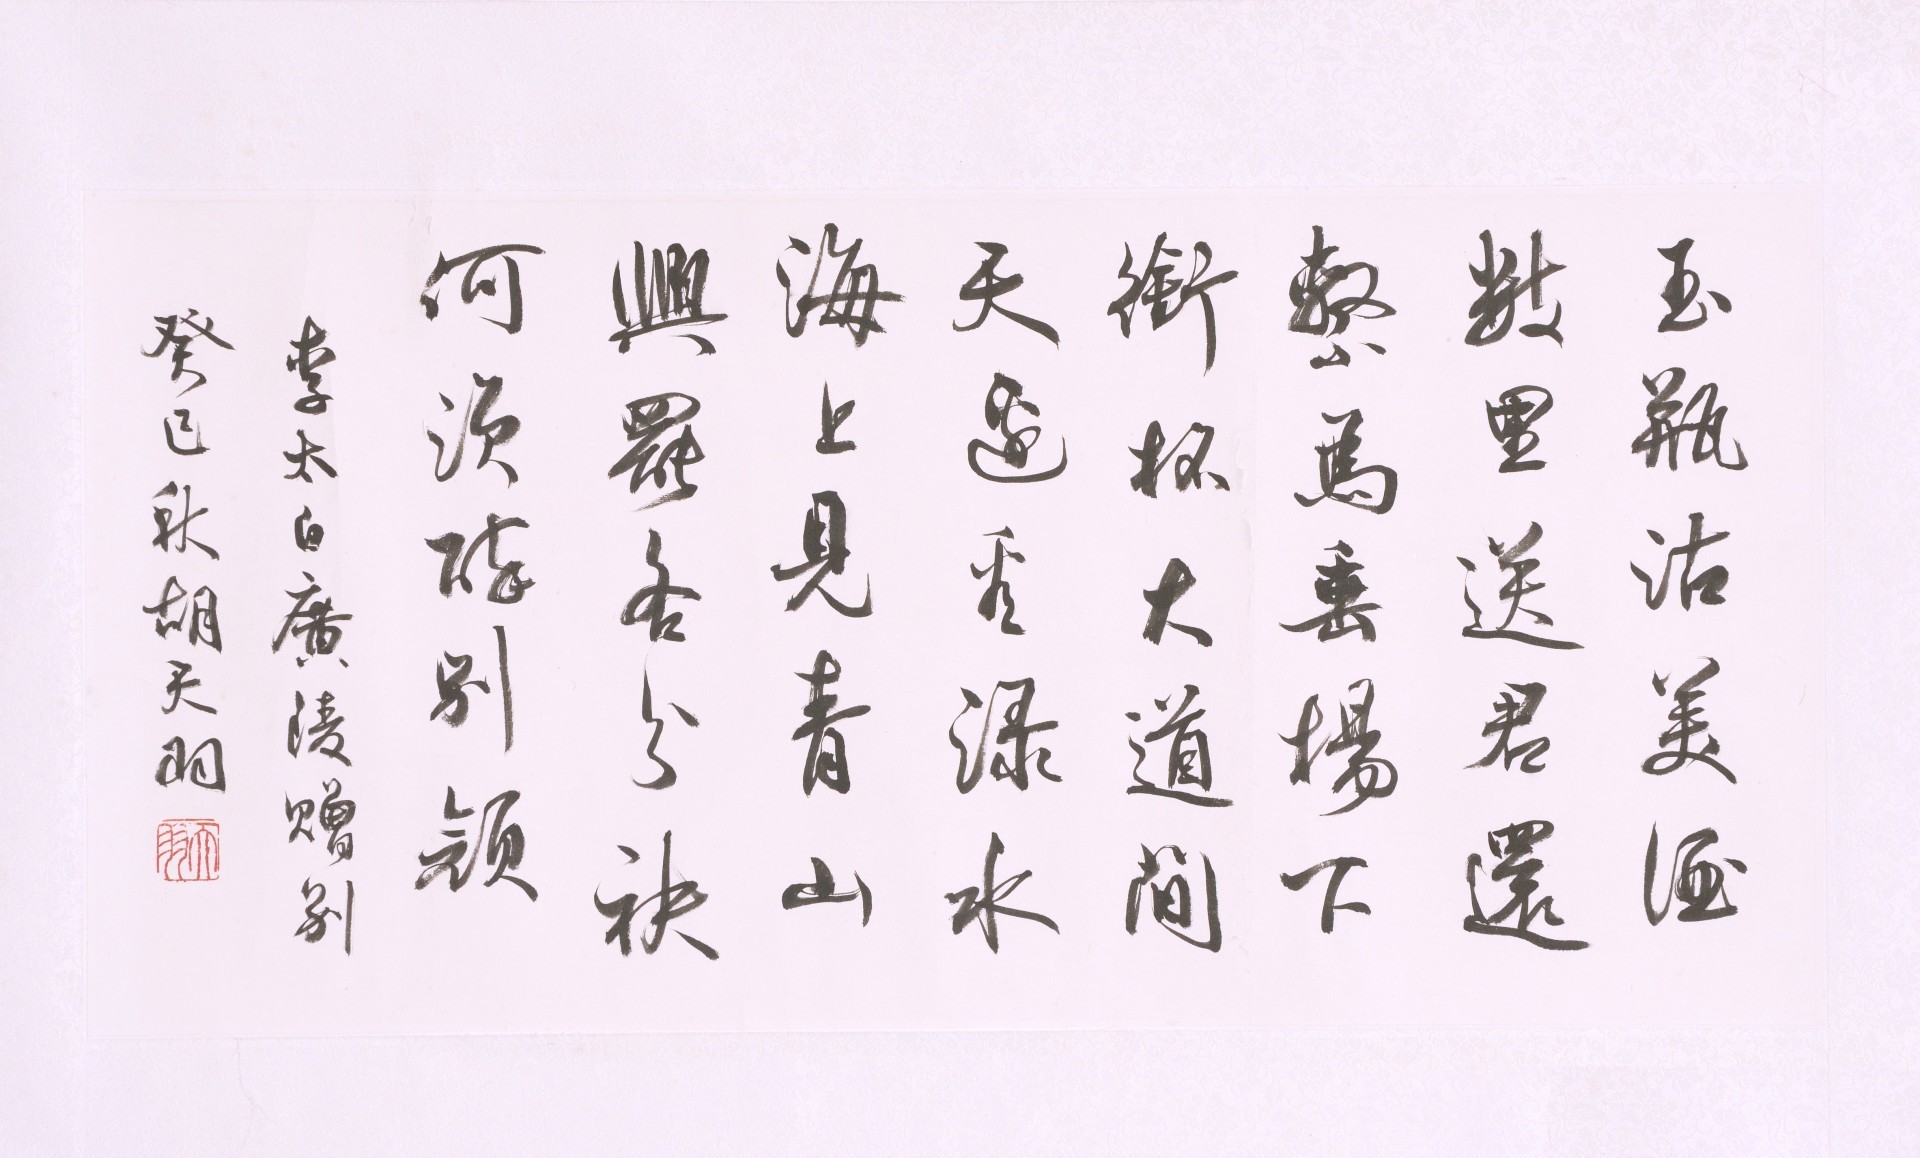 玉瓶沽美酒
數里送君還
繫馬垂楊下
銜杯大道間
天邊看淥水
海上見青山
興罷各分袂
何須醉別顏
李太白廣陵贈別
癸巳秋胡天羽
天羽